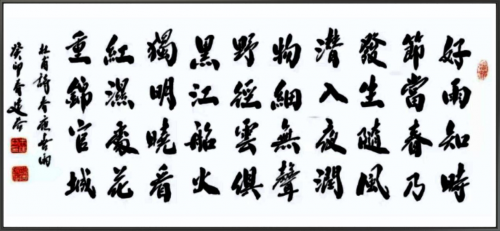 好雨知時
節當春乃
發生隨風
潛入夜潤
物細無聲
野徑雲俱
黑江船火
獨明曉看
紅濕處花
重錦官城
杜甫詩春夜喜雨
癸卯春建